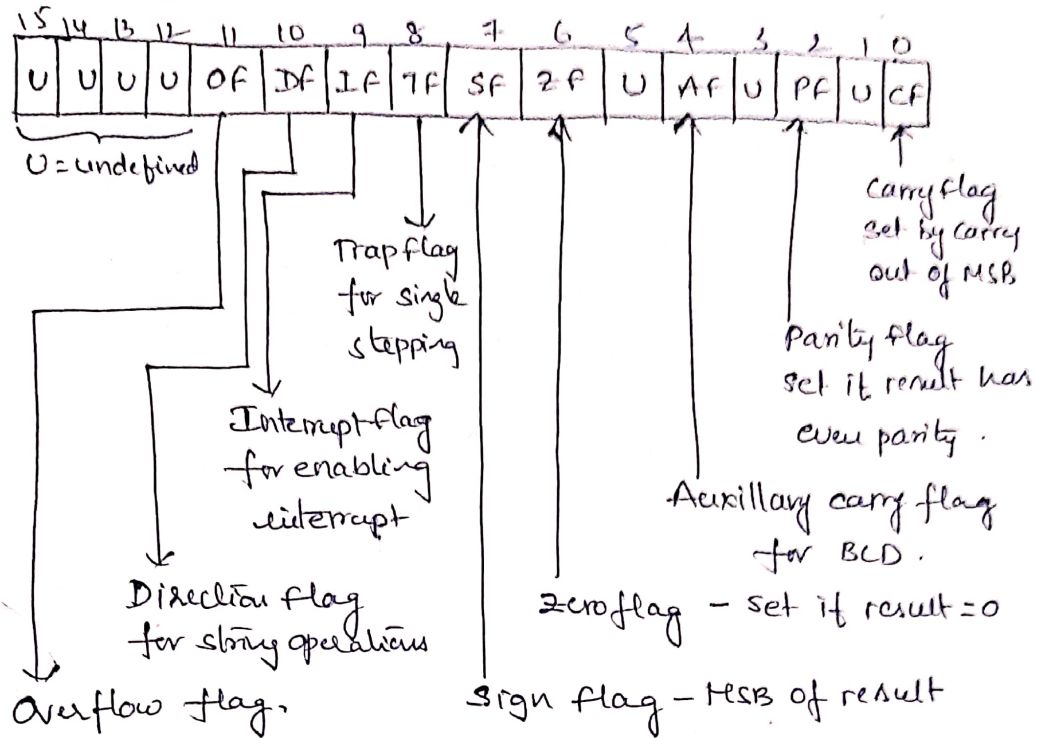 15 14 13 12 11 10 9 8 7 6 5 4 3 2 1 0
U U U U OF DF IF TF SF ZF U AF U PF U CF
U = undefined
Carry flag
set by carry
out of MSB
Trap flag
for single
stepping
Parity flag
set if result has
even parity .
Interrupt flag
for enabling
interrupt
Auxillary carry flag
for BCD .
Direction flag
for string operations
Zero flag - set if result = 0
Overflow flag.
Sign flag - MSB of result